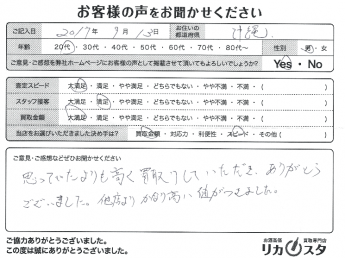 お客様の声をお聞かせください
ご記入日 2017年 9月13日 お住いの都道府県
年齢 20代・30代・40代・50代・60代・70代・80代〜 性別 男・女
ご意見・ご感想を弊社ホームページにお客様の声として掲載させて頂いてもよろしいでしょうか? Yes・No
査定スピード 大満足・満足・やや満足・どちらでもない・やや不満・不満・( )
スタッフ接客 大満足・満足・やや満足・どちらでもない・やや不満・不満・( )
買取金額 大満足・満足・やや満足・どちらでもない・やや不満・不満・( )
当店をお選びいただきました決め手は? 買取金額・対応力・利便性・スピード・その他( )
ご意見・ご感想などぜひお聞かせください
思っていたよりも高く買取りしていただき、ありがとう
ございました。他店よりかなり高い値がつきました。
ご協力ありがとうございました。
この度は誠にありがとうございました。
お酒高価買取専門店
リカスタ